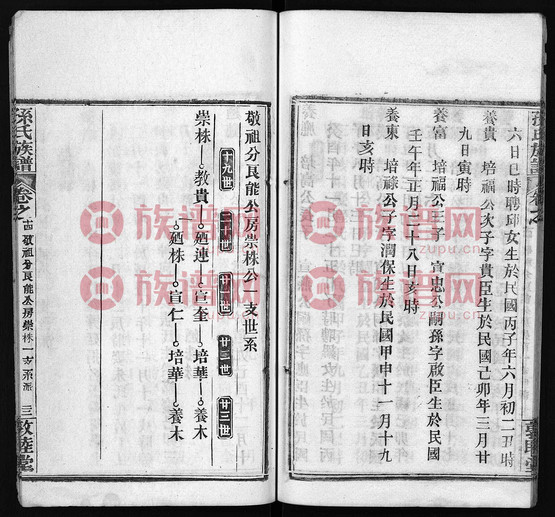 六日巳時聘邱女生於民國丙子年六月初二丑時
養貴 培福公次子字貴臣生於民國己卯年三月廿
九日寅時
養富 培福公三子 宣忠公嗣孫字啟臣生於民國
壬午年正月二十八日亥時
養東 培祿公子字潤保生於民國甲申十一月十九
日亥時
敬祖分良能公房崇株公一支世系
十九世 二十世 廿一世 廿二世 廿三世
崇株 教貴 廼連 宣奎 培華 養木
廼株 宣仁 培華 養木
孫氏族譜 卷之 敬祖分良能公房崇株一支系派 三 敦睦堂
族譜网
zupu.cn